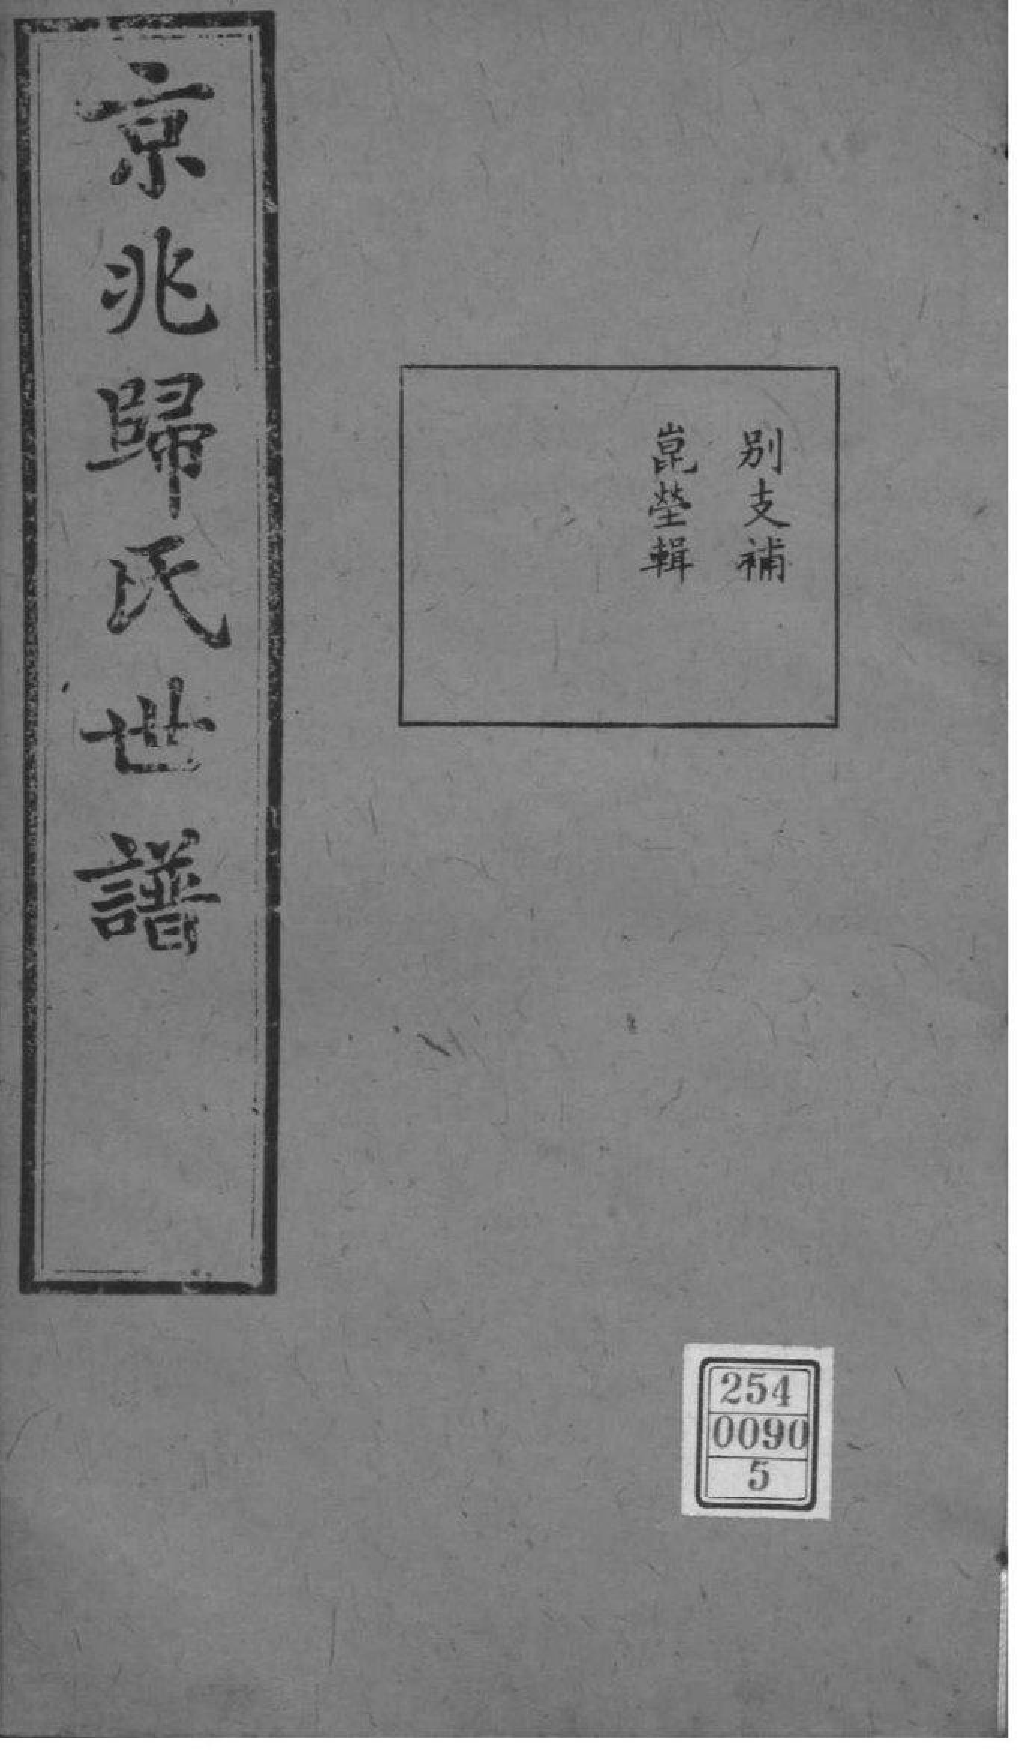 京兆歸氏世譜
別支補
崑塋輯
254
0090
5